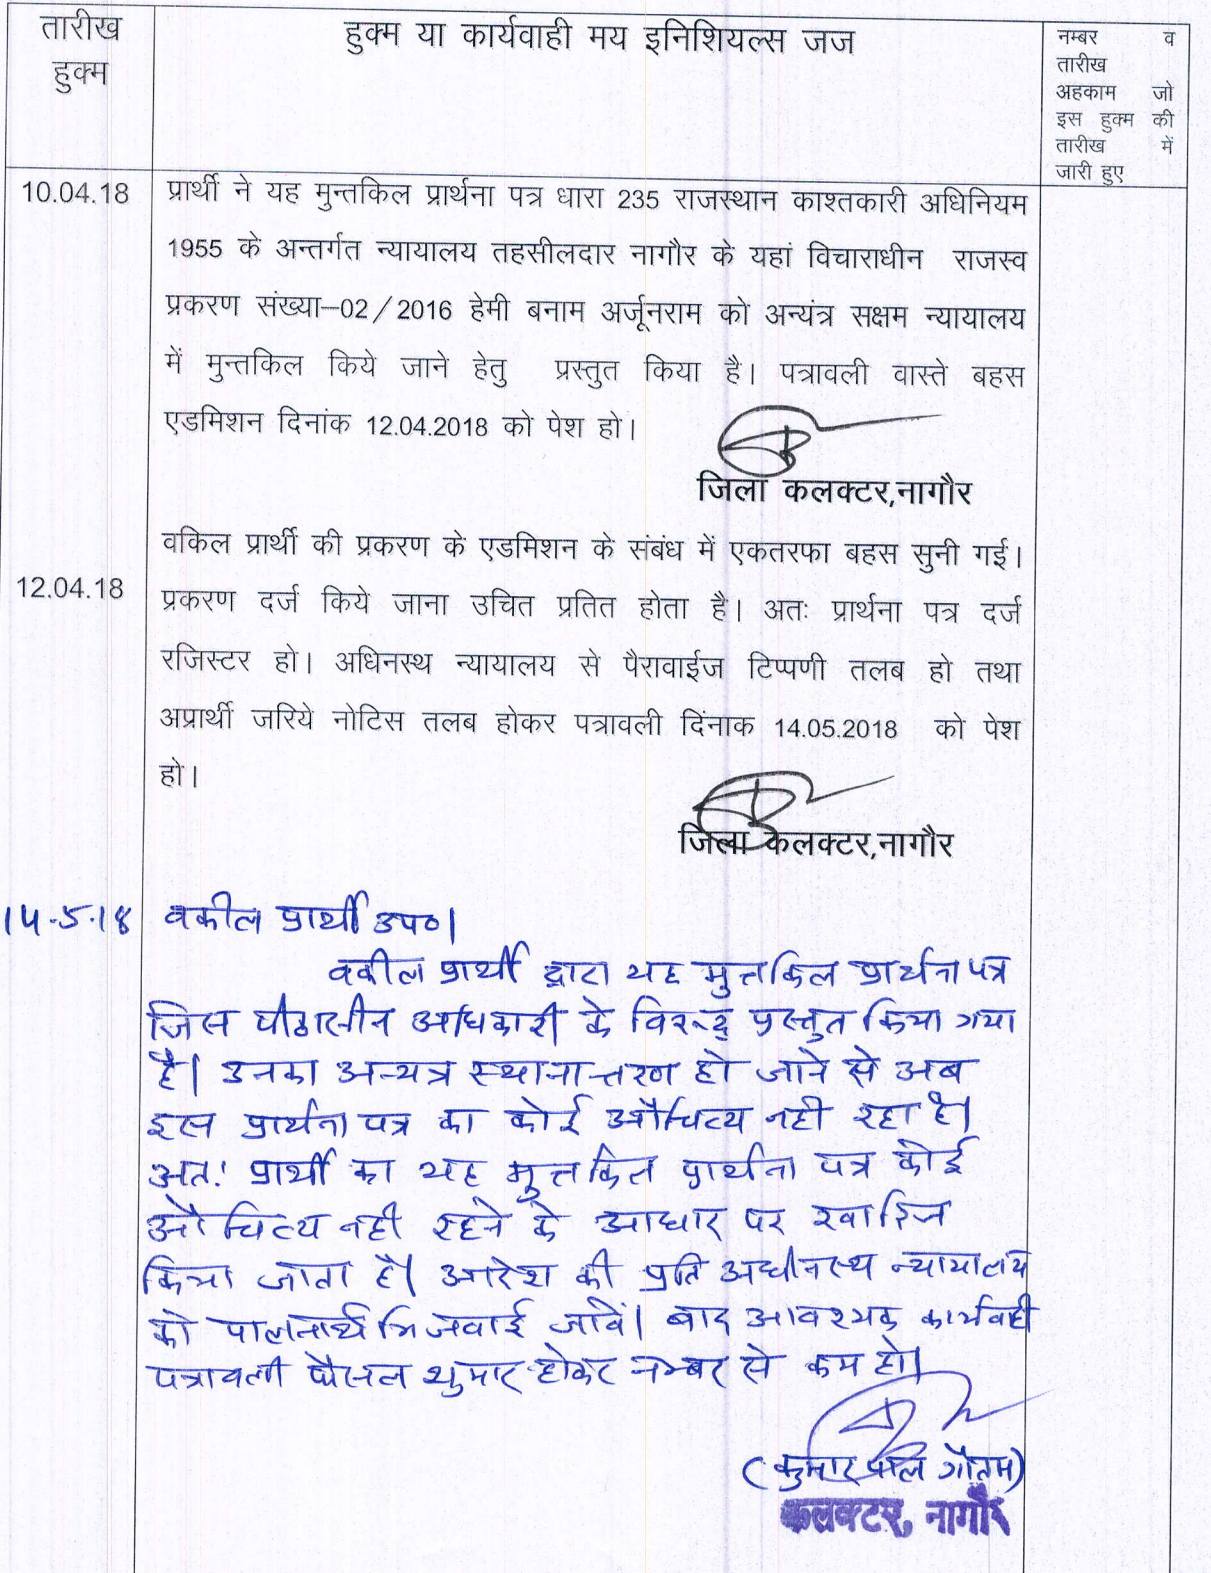 तारीख
हुक्म
हुक्म या कार्यवाही मय इनिशियल्स जज
नम्बर व
तारीख
अहकाम जो
इस हुक्म की
तारीख में
जारी हुए
10.04.18
प्रार्थी ने यह मुन्तकिल प्रार्थना पत्र धारा 235 राजस्थान काश्तकारी अधिनियम
1955 के अन्तर्गत न्यायालय तहसीलदार नागौर के यहां विचाराधीन राजस्व
प्रकरण संख्या–02/2016 हेमी बनाम अर्जूनराम को अन्यंत्र सक्षम न्यायालय
में मुन्तकिल किये जाने हेतु प्रस्तुत किया है। पत्रावली वास्ते बहस
एडमिशन दिनांक 12.04.2018 को पेश हो।
जिला कलक्टर,नागौर
वकिल प्रार्थी की प्रकरण के एडमिशन के संबंध में एकतरफा बहस सुनी गई।
12.04.18
प्रकरण दर्ज किये जाना उचित प्रतित होता है। अतः प्रार्थना पत्र दर्ज
रजिस्टर हो। अधिनस्थ न्यायालय से पैरावाईज टिप्पणी तलब हो तथा
अप्रार्थी जरिये नोटिस तलब होकर पत्रावली दिंनाक 14.05.2018 को पेश
हो।
जिला कलक्टर,नागौर
14-5-18 वकील प्रार्थी उप०।
वकील प्रार्थी द्वारा यह मुत्तकिल प्रार्थना पत्र
जिस पीठासीन अधिकारी के विरुद्ध प्रस्तुत किया गया
है। उनका अन्यत्र स्थानान्तरण हो जाने से अब
इस प्रार्थना पत्र का कोई औचित्य नही रहा है।
अतः प्रार्थी का यह मुत्तकिल प्रार्थना पत्र कोई
औचित्य नही रहने के आधार पर खारिज
किया जाता है। आदेश की प्रति अधीनस्थ न्यायालय
को पालनार्थ भिजवाई जावें। बाद आवश्यक कार्यवाही
पत्रावली फैसल शुमार होकर नम्बर से कम हो।
(कुमार पाल गौतम)
कलक्टर, नागौर